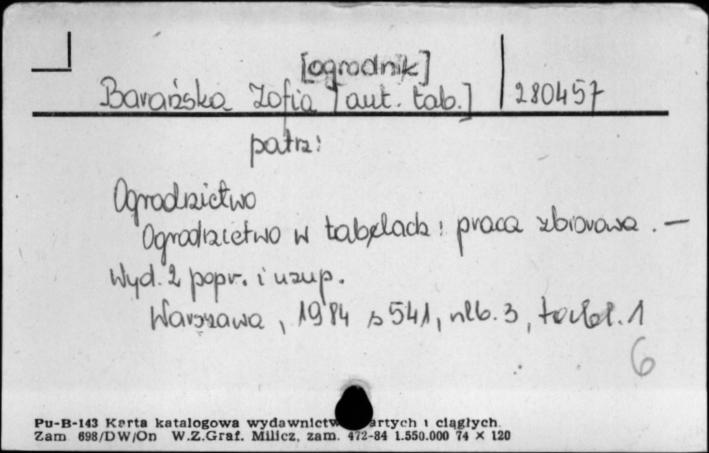 [ogrodnik]
Barańska Zofia [aut. tab.] 280457
patrz:
Ogrodnictwo
Ogrodnictwo w tabelach : praca zbiorowa . —
Wyd. 2 popr. i uzup.
Warszawa , 1984 s 541, nlb. 3, 1
6
Pu-B-143 Karta katalogowa wydawnictw artych i ciągłych.
Zam 698/DW/On W.Z.Graf. Milicz, zam. 472-84 1.550.000 74 × 120